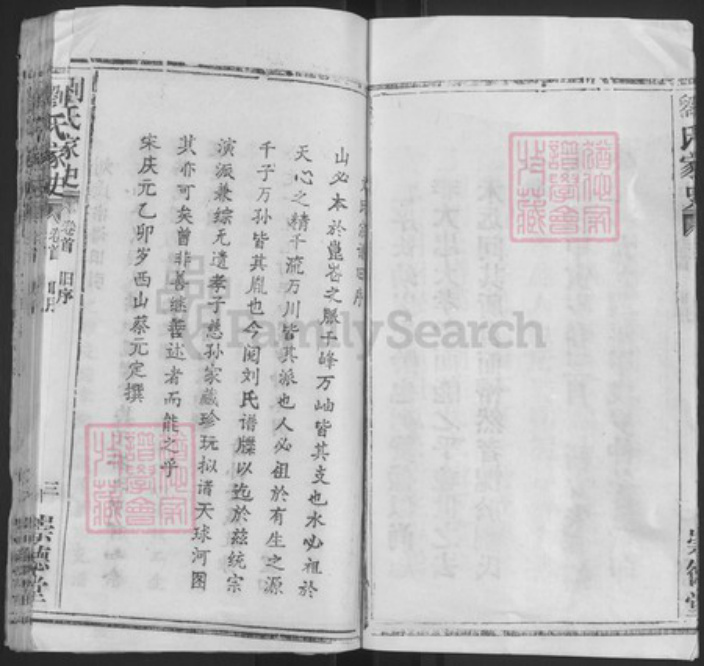 刘氏家谱旧序
山必本於崑崙之脈千峰万岫皆其支也水必祖於
天心之精千流万川皆其派也人必祖於有生之源
千子万孙皆其胤也今阅刘氏谱牒以迄於兹统宗
演派兼综无遗孝子慈孙家藏珍玩拟诸天球河图
其亦可矣曽非善继善述者而能之乎
宋庆元乙卯岁西山蔡元定撰
劉氏家史
卷首 旧序
三
崇德堂
劉氏家史
卷首
劉氏家史
崇德堂
FamilySearch